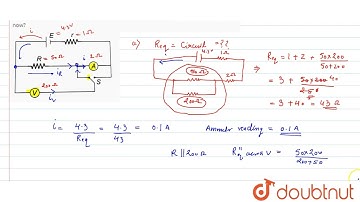 now?
4.3V
i E r = 1Ω
R = 50Ω i 2Ω
A
iR S
200Ω
V iv
a) Req = Circuit = ??
4.3V 1Ω
50Ω 2Ω
200Ω
⇒ Req = 1 + 2 + 50×200 / 50+200
= 3 + 50×200 40 / 250
= 3 + 40 = 43 Ω
i = 4.3 / Req = 4.3 / 43 = 0.1 A Ammeter reading = 0.1 A
R || 200Ω R"eq across V = 50×200 / 200+50
doubtnut